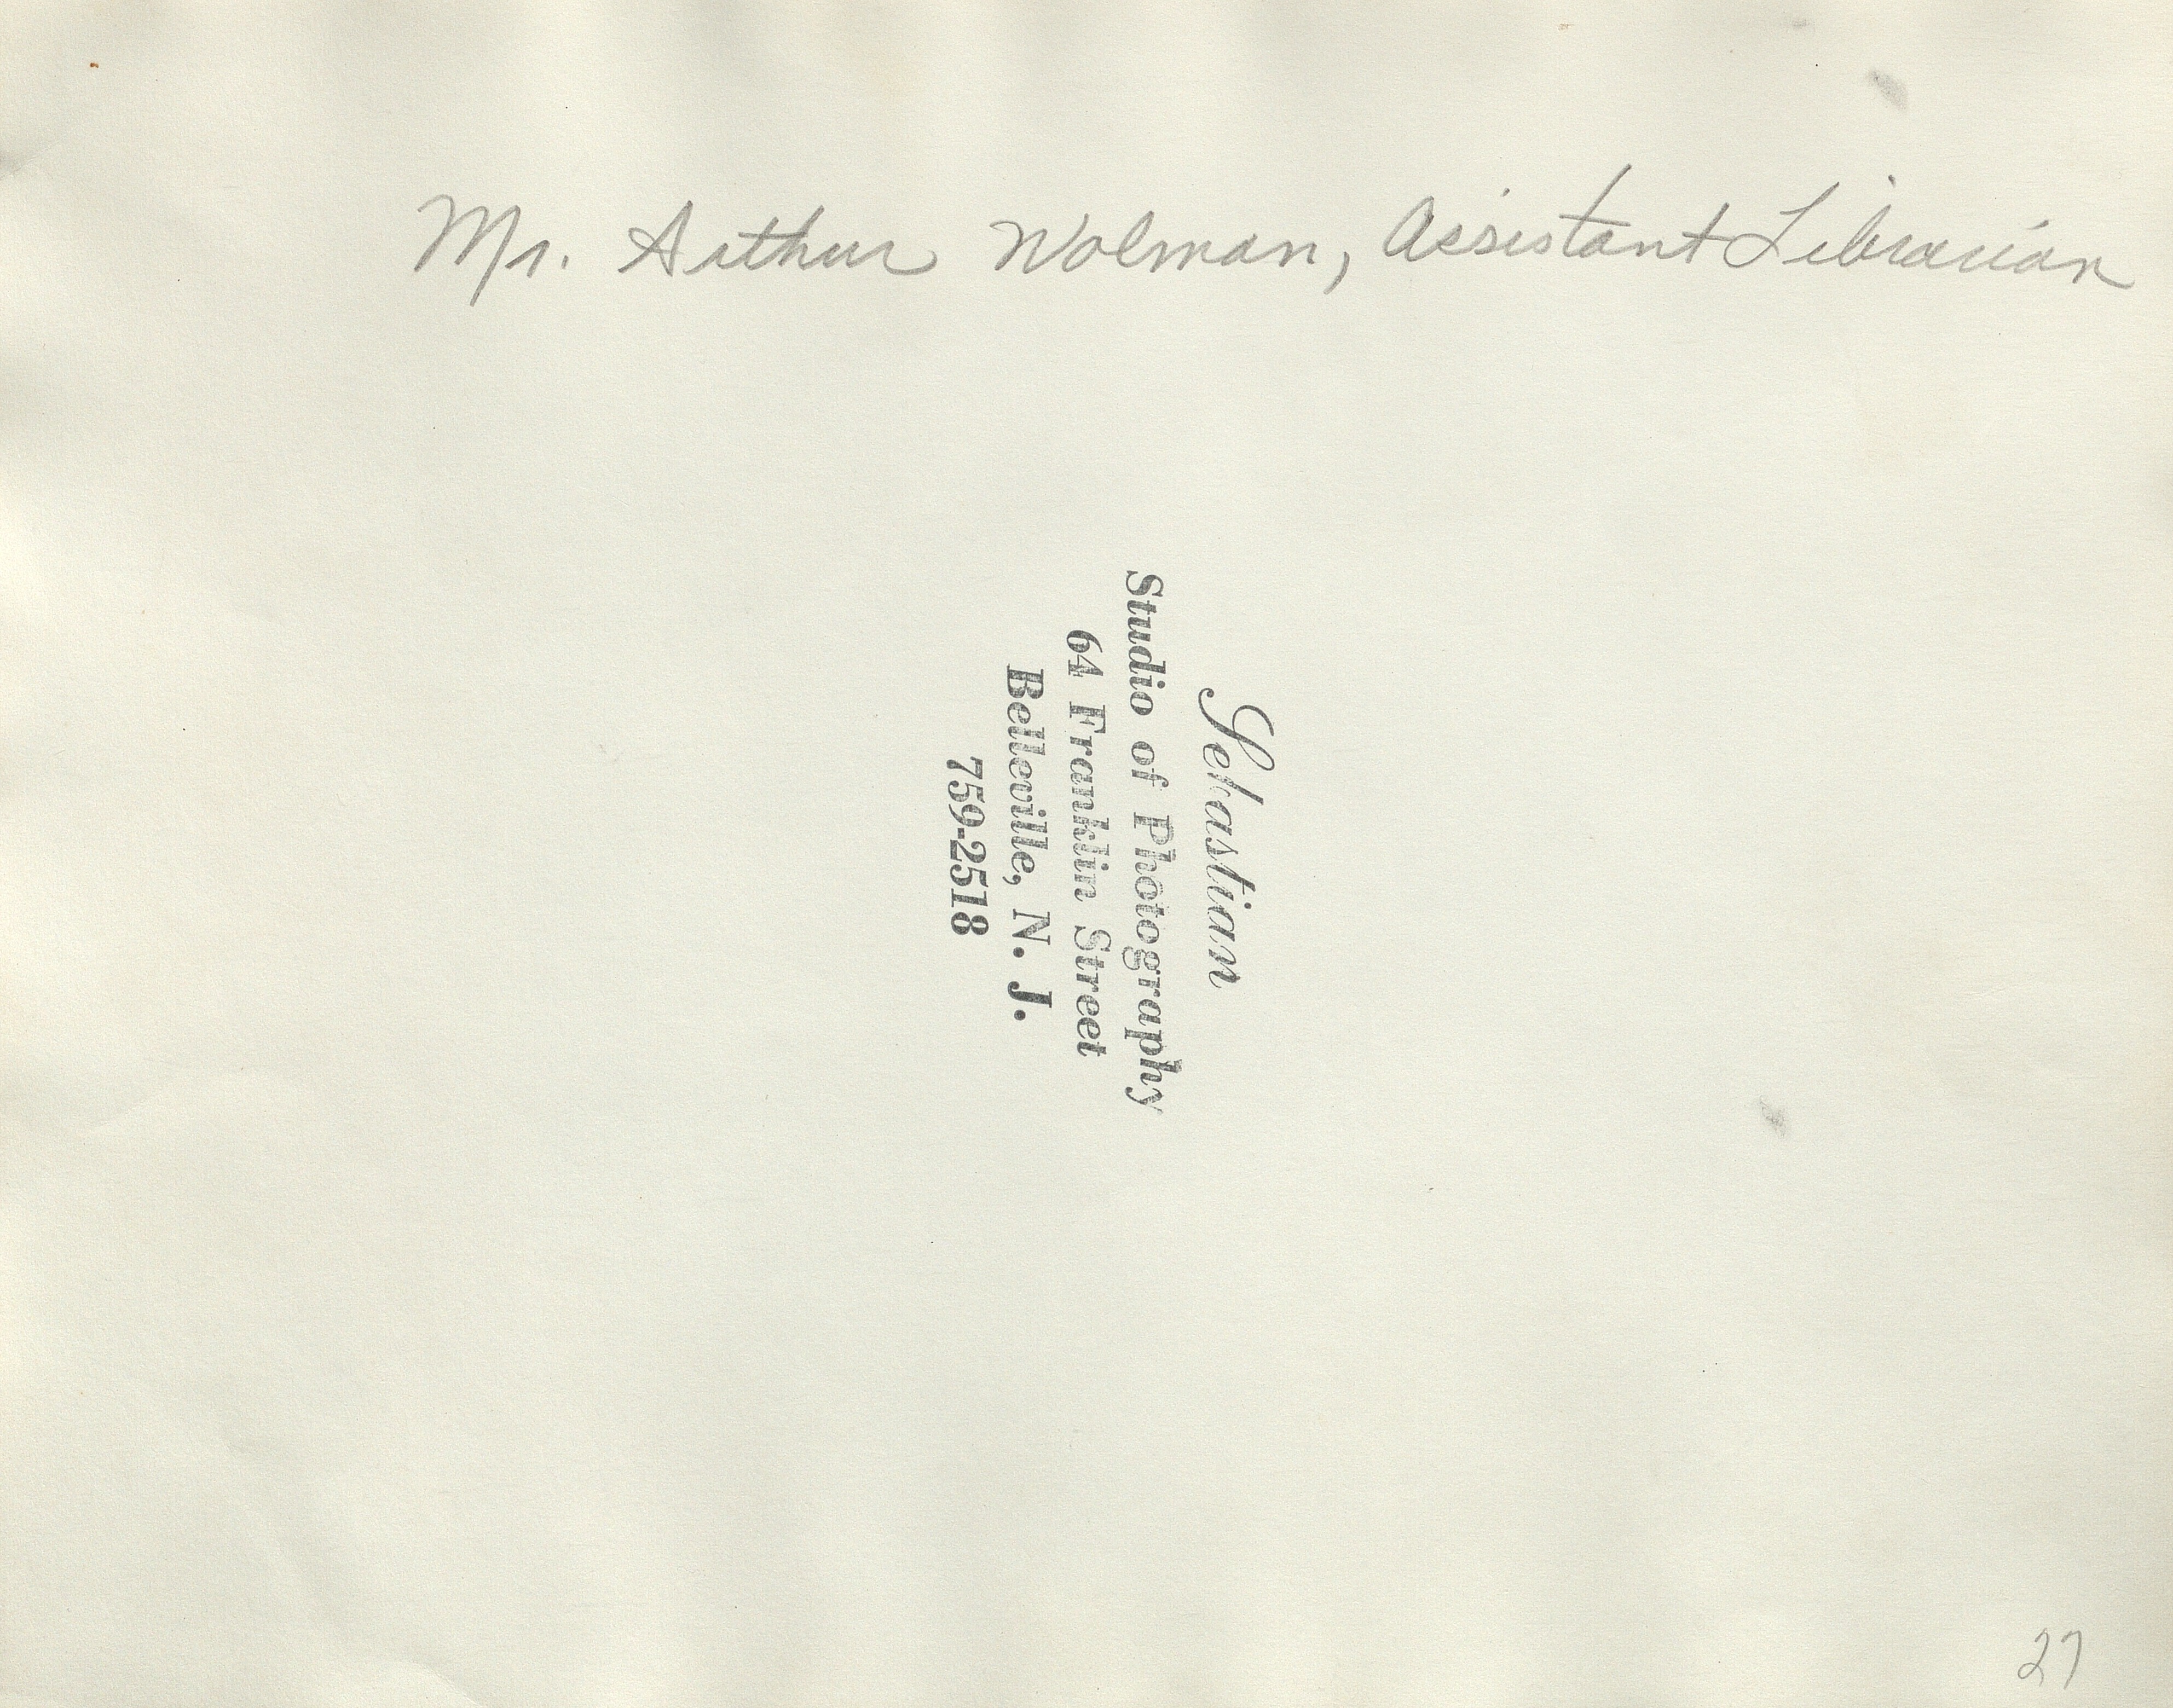 Mr. Arthur Wolman, Assistant Librarian
Sebastian
Studio of Photography
64 Franklin Street
Belleville, N. J.
759-2518
27